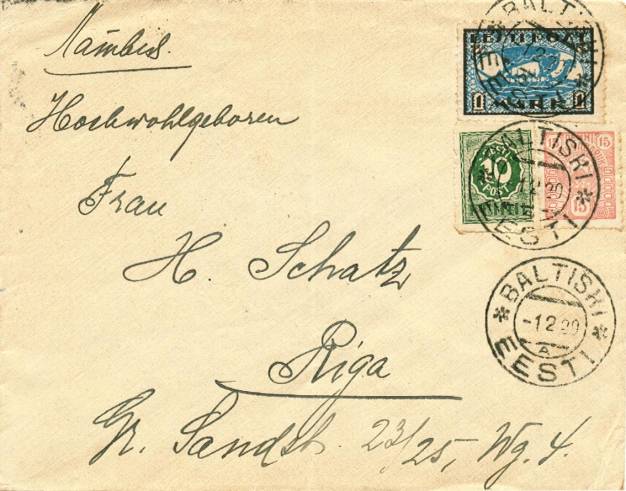 Hochwohlgeboren
Frau
H. Schatz
Riga
Gr. Sandstr. 23/25, Wg. 4.
EESTI POST
1 MARK 1
EESTI
POST
10
15 15
15
BALTISKI
EESTI
BALTISKI
EESTI
BALTISKI
-1 2 20
A
EESTI